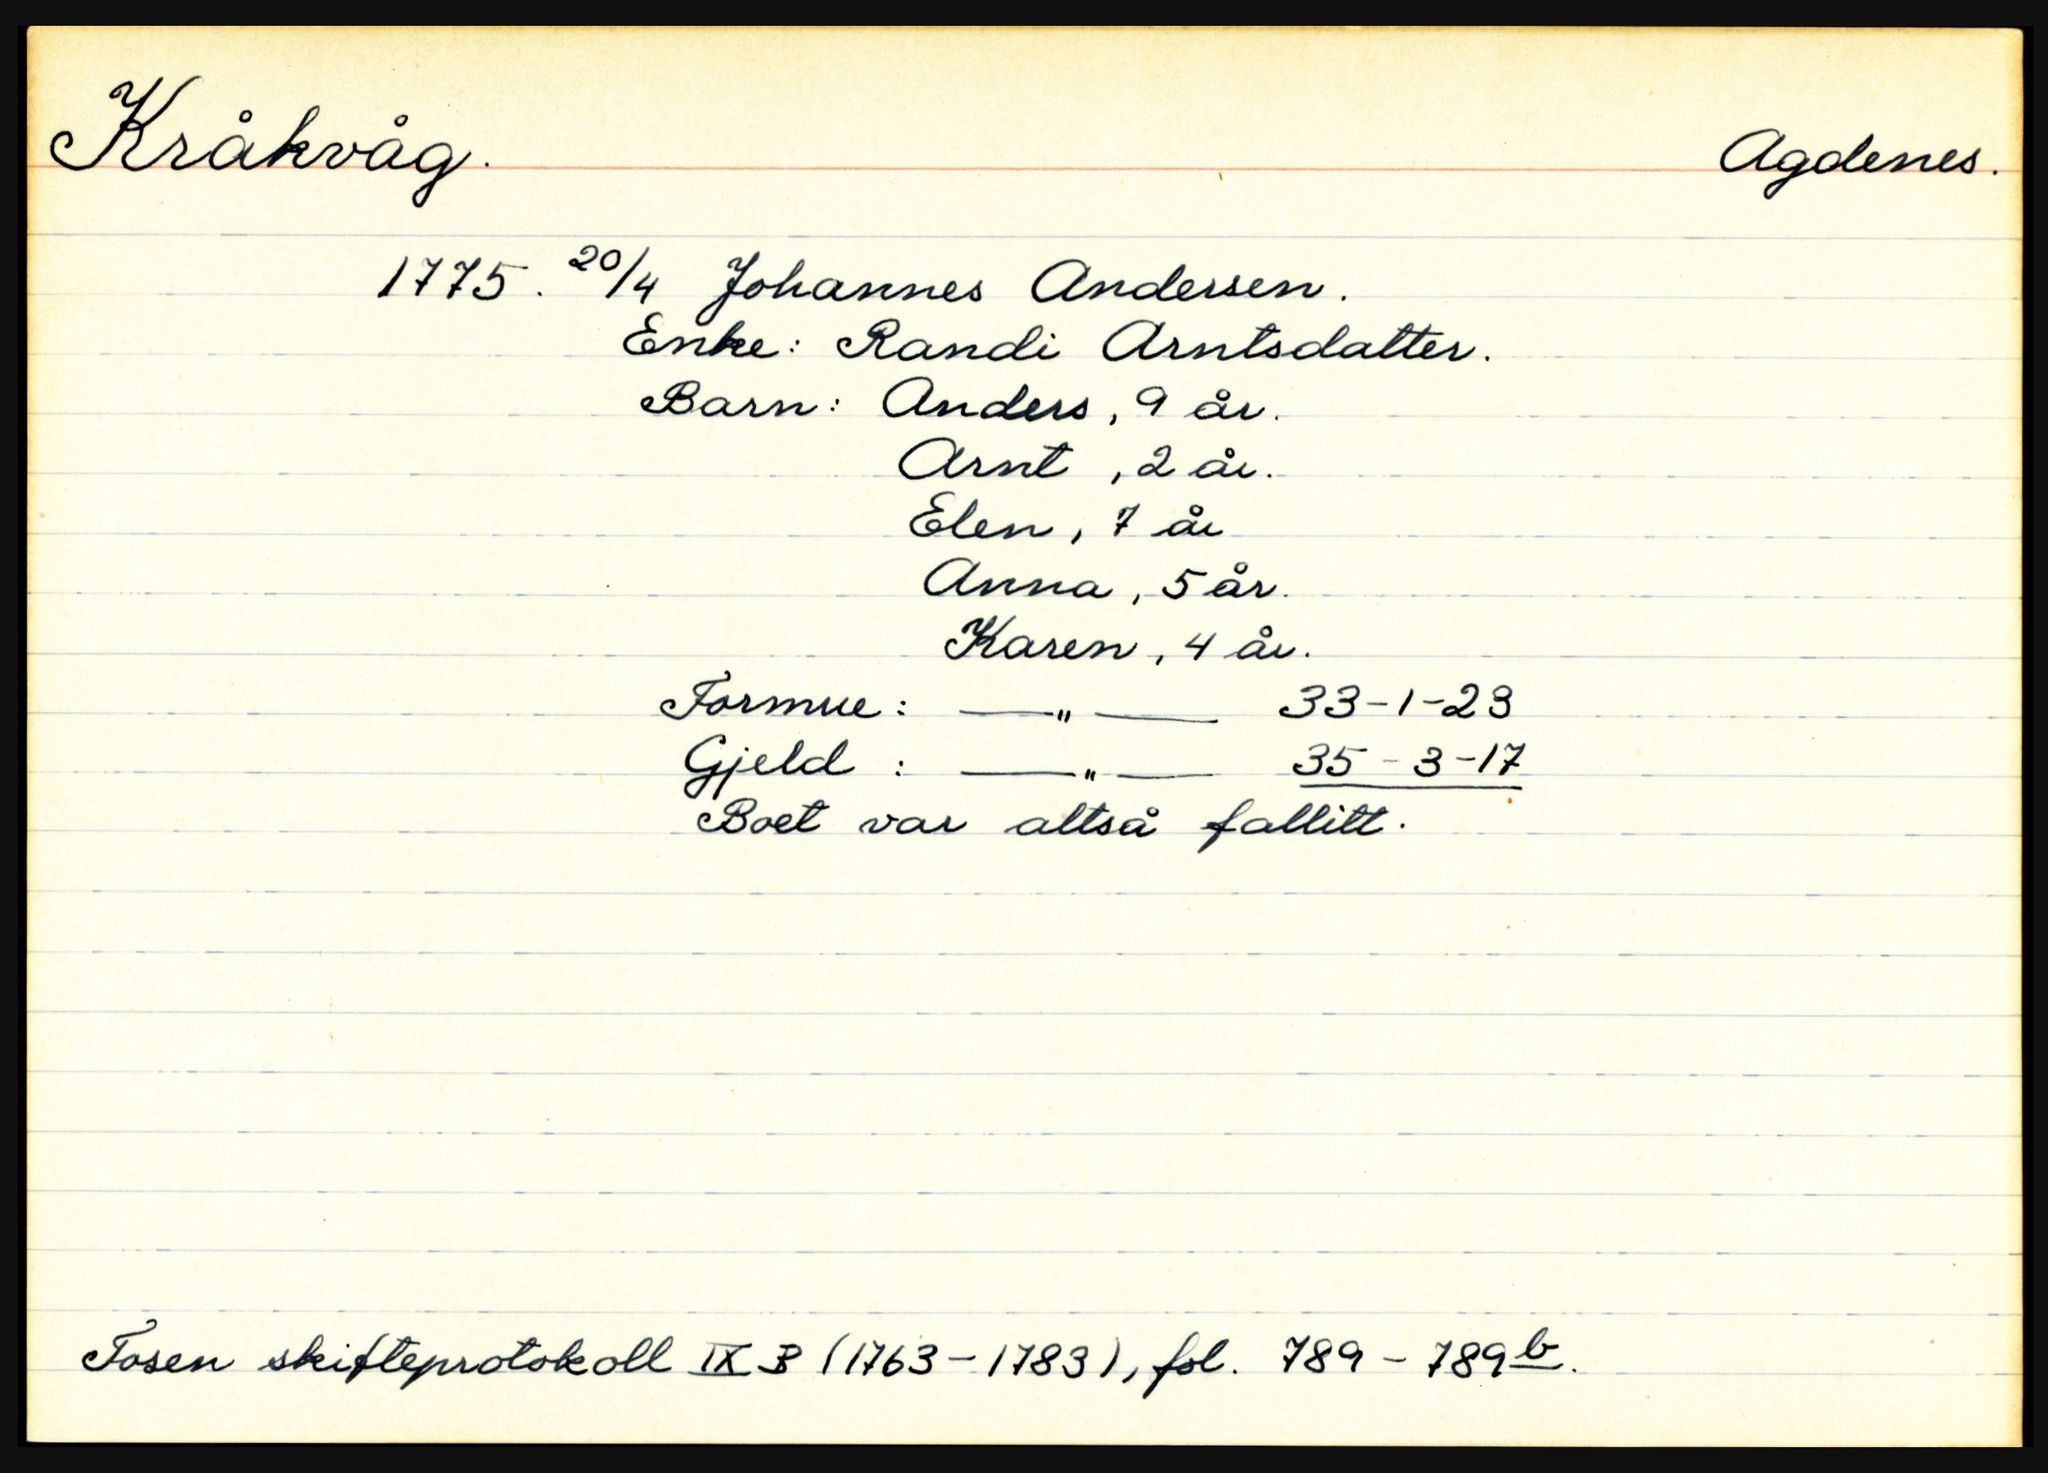 Kråkvåg. Agdenes.
1775. 20/4 Johannes Andersen.
Enke: Randi Arntsdatter.
Barn: Anders, 9 år.
Arnt, 2 år.
Elen, 7 år
Anna, 5 år.
Karen, 4 år.
Formue: —"— 33-1-23
Gjeld: —"— 35-3-17
Boet var altså fallitt.
Fosen skifteprotokoll IX B (1763-1783), fol. 789-789b.